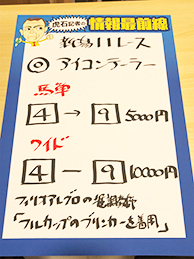 虎石記者の 情報最前線
新潟11Rレース
◎アイコンテーラー
馬単
4→9 5000円
ワイド
4-9 10000円
フルカップのブリンカーを着用